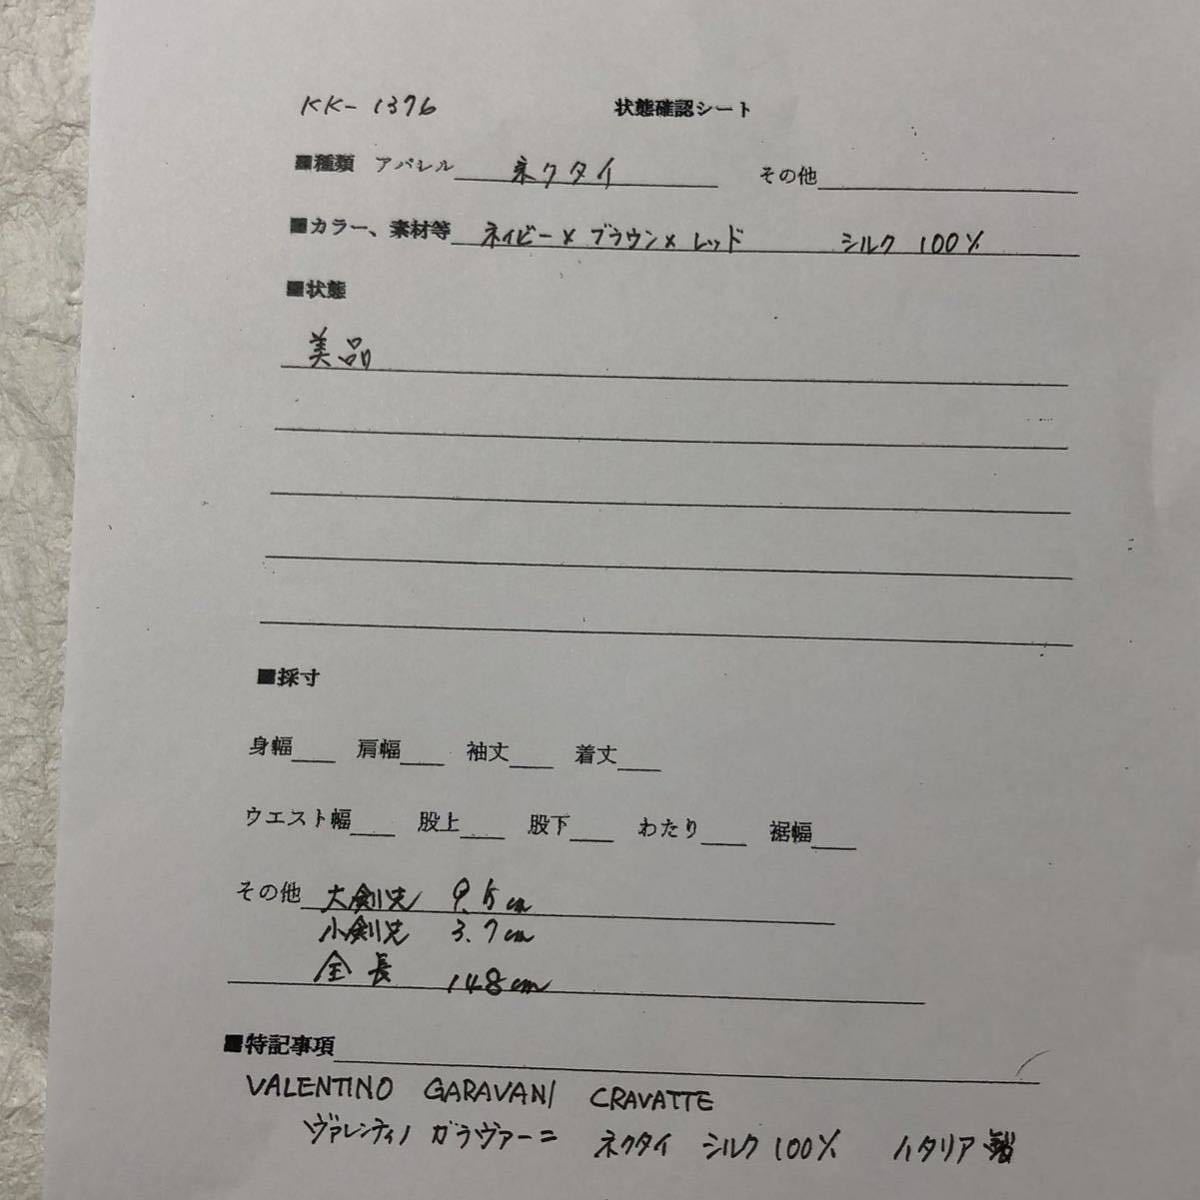 KK-1376 状態確認シート
■種類 アパレル ネクタイ その他
■カラー、素材等 ネイビー×ブラウン×レッド シルク 100%
■状態
美品
■採寸
身幅 肩幅 袖丈 着丈
ウエスト幅 股上 股下 わたり 裾幅
その他 大剣先 9.5cm
小剣先 3.7cm
全長 148cm
■特記事項
VALENTINO GARAVANI CRAVATTE
ヴァレンティノ ガラヴァーニ ネクタイ シルク100% イタリア製